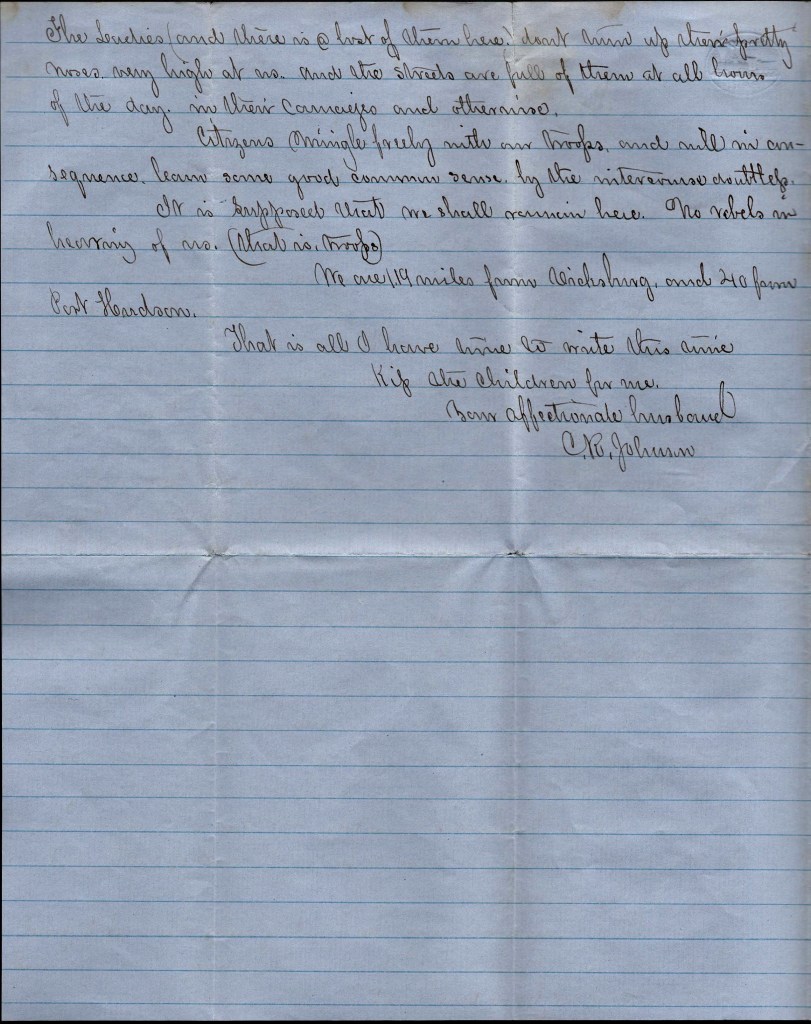 The Ladies (and there is a host of them here) dont turn up their pretty
noses very high at us. and the streets are full of them at all hours
of the day. in their carraiges and otherwise.
Citizens mingle freely with our troops, and will in con-
sequence. learn some good common sense. by the intercourse doubtless.
It is supposed that we shall remain here. No rebels in
hearing of us. (that is, troops)
We are 119 miles from Vicksburg, and 240 from
Port Hudson.
That is all I have time to write this time
Kiss the children for me.
Your affectionate husband
C.R. Johnson